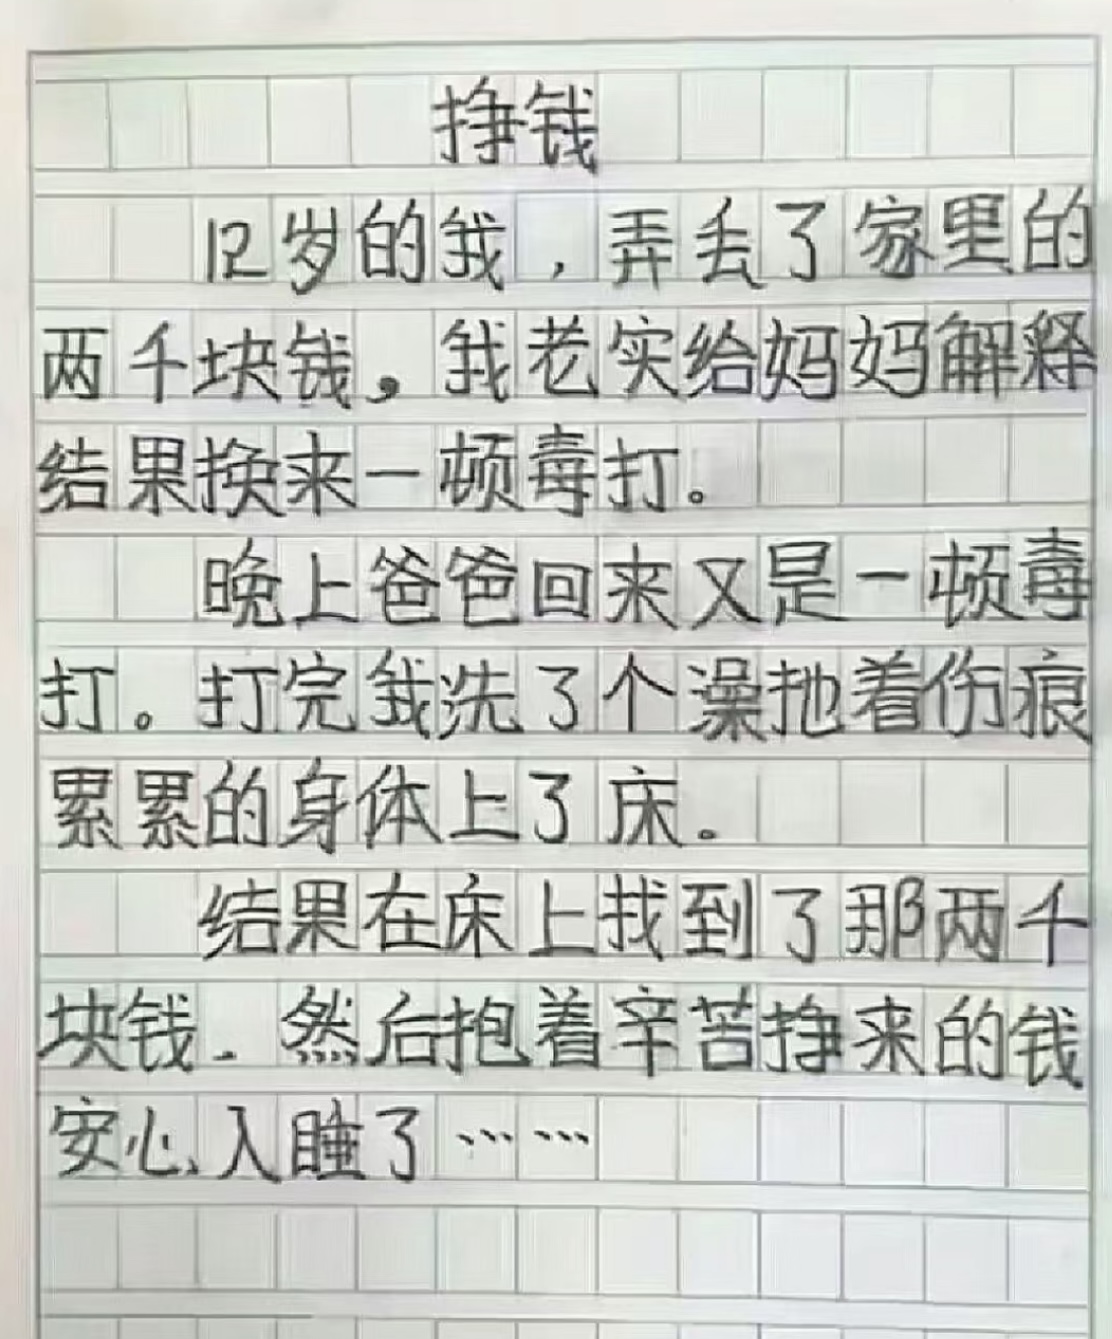 挣钱
12岁的我,弄丢了家里的
两千块钱。我老实给妈妈解释
结果换来一顿毒打。
晚上爸爸回来又是一顿毒
打。打完我洗了个澡拖着伤痕
累累的身体上了床。
结果在床上找到了那两千
块钱.然后抱着辛苦挣来的钱
安心入睡了……